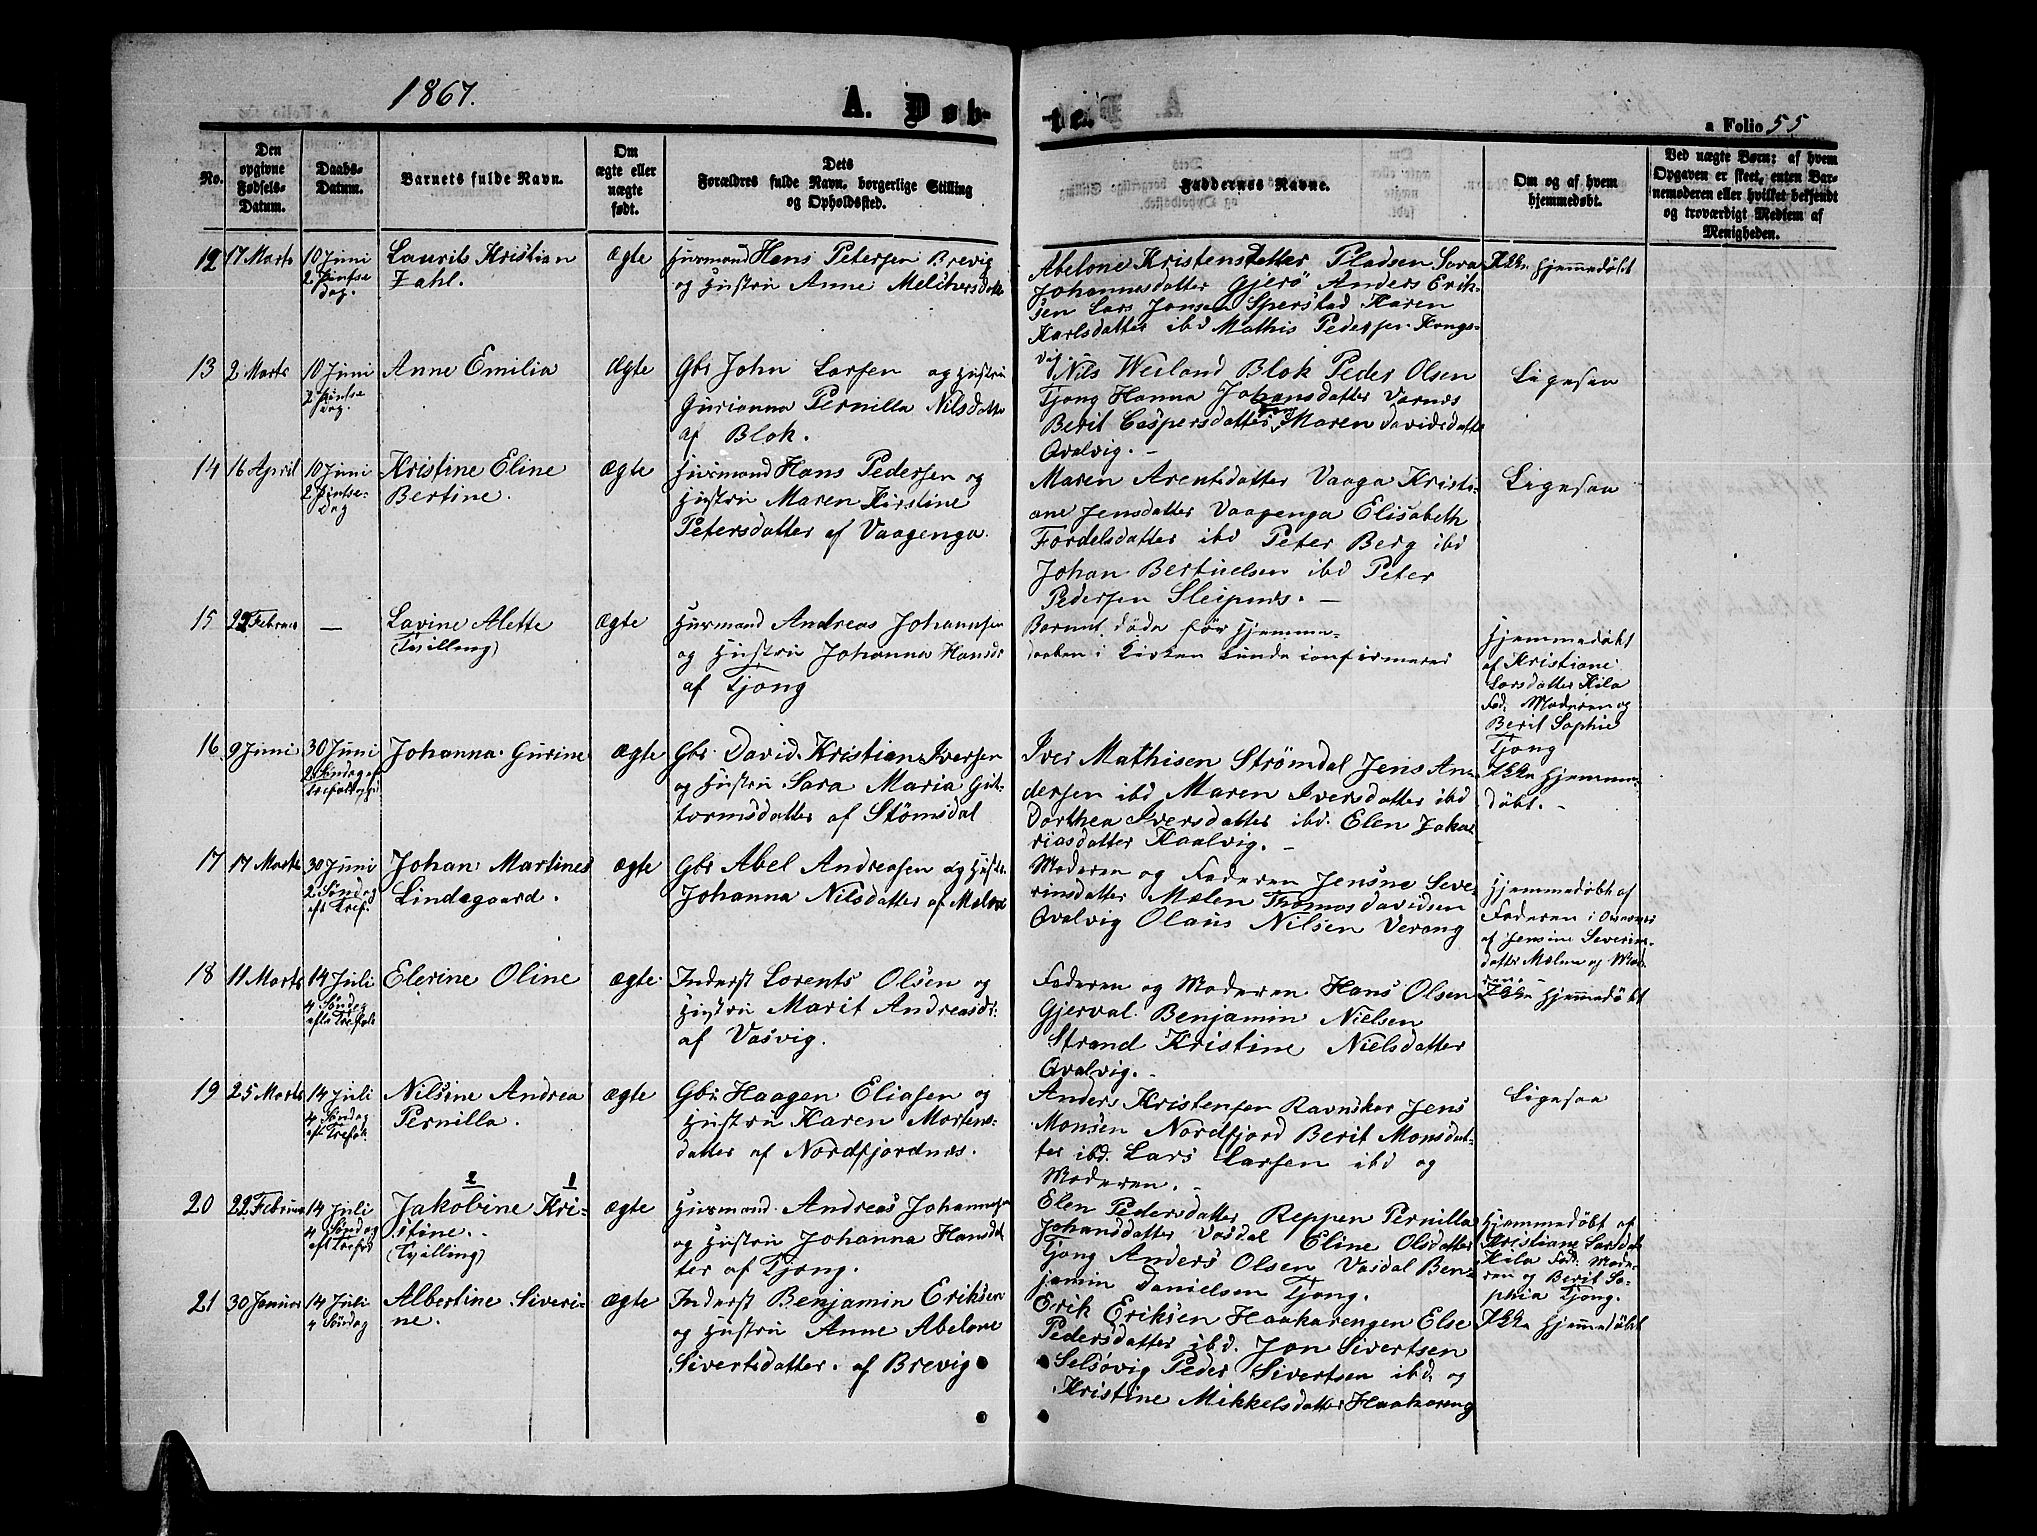 1867.
A. Døb-
te.
a Folio 55
No.
Den
opgivne
Fødsels-
Datum.
Daabs-
Datum.
Barnets fulde Navn.
Om
ægte eller
uægte
født.
Dets
Forældres fulde Navn, borgerlige Stilling
og Opholdssted.
Faddernes Navne.
Om og af hvem
hjemmedøbt.
Ved uægte Børn: af hvem
Opgaven er skeet, enten Bar-
nemoderen eller hvilket bekjendt
og troværdigt Medlem af
Menigheden.
12
17 Marts
10 Juni
2 Pintse
dag.
Laurits Kristian
Zahl.
Ægte
Huusmand Hans Petersen Brevig
og Hustru Anne Melchersdatte
Abelone Kristensdatter Pladsen Sara
Johannesdatter Gjerö Anders Erik-
sen Lars Jonsen Sperstad Karen
Karlsdatter ibd Mathis Pedersen Kongs-
vig.
Ikke Hjemmedøbt
13
2 Marts
10 Juni
2 Pintse
Dag.
Anne Emilia
Ægte
Gbr John Larsen og Hustru
Gurianna Pernilla Nilsdatte
af Blok.
Nils Weiland Blok Peder Olsen
Tjong Hanna Johansdatter Varnes
Berit Caspersdatter Maren Davidsdatte
Qvalvig. -
Ligesaa
14
16 April
10 Juni
2 Pintse-
Dag
Kristine Eline
Bertine.
Ægte
Huusmand Hans Pedersen og
Hustru Maren Kirstine
Petersdatter af Vaagenga.
Maren Arentsdatter Vaaga Kristi-
ane Jensdatter Vaagenga Elisabeth
Fordelsdatter ibd Peter Berg ibd
Johan Bertuelsen ibd Peter
Pedersen Sleipnes. -
Ligesaa
15
22 Februar
-
Lavine Alette
(Tvilling)
Ægte
Huusmand Andreas Johannsen
og Hustru Johanna Hansdr
af Tjong
Barnet døde før Hjemme-
daaben i Kirken kunde confirmeres
Hjemmedøbt
af Kristiane
Larsdatter Kila
Fad. Moderen og
Berit Sophie
Tjong
16
9 Juni
30 Juni
2 Søndag ef
Trefoldighd
Johanna Gurine
Ægte
Gbr. David Kristian Iversen
og Hustru Sara Maria Gut-
tormsdatter af Stømsdal
Iver Mathisen Strømdal Jens An-
dersen ibd Maren Iversdatter ibd
Dorthea Iversdatter ibd. Elen Zaka-
riasdatter Kaalvig. -
Ikke Hjemme-
døbt. -
17
17 Marts
30 Juni
2 Søndag
eft Tref.
Johan Martines
Lindegaard.
Ægte
Gbr Abel Andreasen og Hustr.
Johanna Nilsdatter af Mælen
Moderen og Faderen Jensine Seve-
rinsdatter Mælen Thomas Davidsen
Qvalvig Olaus Nilsen Verang
Hjemmedøbt af
Faderen i
af Jensine Severins-
datter Mælen og Mod-
eren -
18
11 Marts
14 Juli
4 Søndag
efte Trefold
Elerine Oline
Ægte
Inderst Lorents Olsen og
Hustru Marit Andreasdr.
af Vasvig.
Faderen og Moderen Hans Olsen
Gjerval. Benjamin Nielsen
Strand Kristine Nielsdatter
Qvalvig. -
Ikke Hjemmedøbt
19
25 Marts
14 Juli
4 Søndag
eft Trefol.
Nilsine Andrea
Pernilla.
Ægte
Gbr. Haagen Eliasen og
Hustru Karen Mortens-
datter af Nordfjordnæs.
Anders Kristensen Ravnskar Jens
Monsen Nordfjord Berit Monsdat-
ter ibd. Lars Larsen ibd og
Moderen. -
Ligesaa
20
22 Februar
14 Juli
4 Søndag
eft Trefol
2 1
Jakobine Kri-
stine.
(Tvilling)
Ægte
Huusmand Andreas Johannsen
og Hustru Johanna Hansdat
ter af Tjong.
Elen Pedersdatter Reppen Pernilla
Johansdatter Vasdal Eline Olsdatter
Tjong Anders Olsen Vasdal Ben-
jamin Danielsen Tjong.
Hjemmedøbt af
Kristiane Larsdat
Kila Fad. Mode-
ren og Berit So-
phia Tjong.
21
30 Januar
14 Juli
4 Søndag
Albertine Siveri-
ne.
Ægte
Inderst Benjamin Eriksen
og Hustru Anne Abelone
Sivertsdatter. af Brevig
Erik Eriksen Haakarengen Else
Pedersdatter ibd. Jon Sivertsen
Selsøvig Peder Sivertsen ibd. og
Kristine Mikkelsdatter Haakareng
Ikke Hjemmedøbt